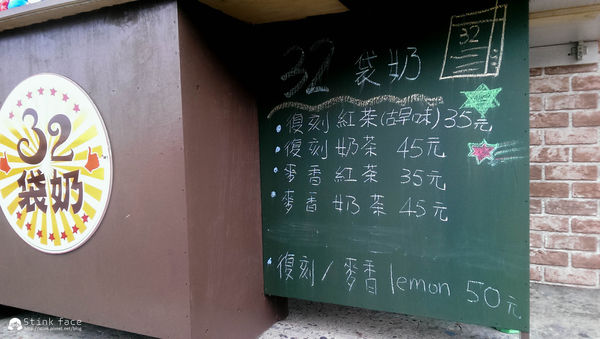 32
袋奶
32 袋奶
32
復刻 紅茶(古早味) 35元
復刻 奶茶 45元
麥香 紅茶 35元
麥香 奶茶 45元
復刻 / 麥香 lemon 50元
Stink face
http://stink.pixnet.net/blog